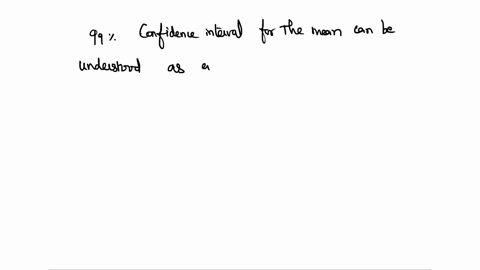 99%. Confidence interval for the mean can be
understood as